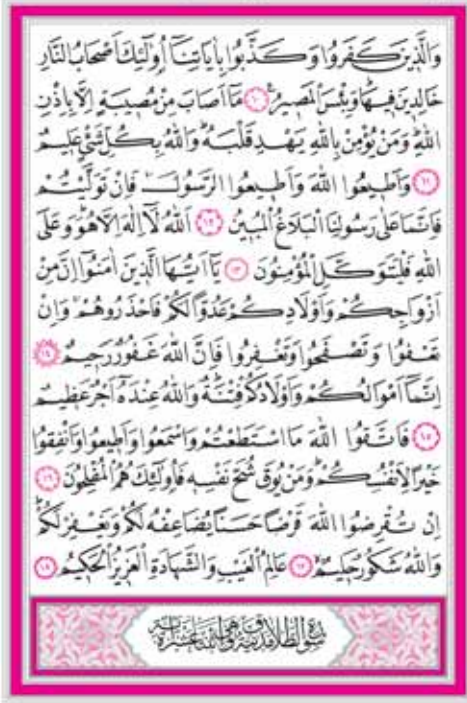 وَالَّذِينَ كَفَرُوا وَكَذَّبُوا بِاٰيَاتِنَٓا اُو۬لٰٓئِكَ اَصْحَابُ النَّارِ
خَالِدِينَ فِيهَاۜ وَبِئْسَ الْمَصِيرُ۟ ﴿١٠﴾ مَٓا اَصَابَ مِنْ مُصِيبَةٍ اِلَّا بِاِذْنِ
اللّٰهِۜ وَمَنْ يُؤْمِنْ بِاللّٰهِ يَهْدِ قَلْبَهُۜ وَاللّٰهُ بِكُلِّ شَيْءٍ عَلِيمٌ
﴿١١﴾ وَاَطِيعُوا اللّٰهَ وَاَطِيعُوا الرَّسُولَۚ فَاِنْ تَوَلَّيْتُمْ
فَاِنَّمَا عَلٰى رَسُولِنَا الْبَلَاغُ الْمُبِينُ ﴿١٢﴾ اَللّٰهُ لَٓا اِلٰهَ اِلَّا هُوَۜ وَعَلَى
اللّٰهِ فَلْيَتَوَكَّلِ الْمُؤْمِنُونَ ﴿١٣﴾ يَٓا اَيُّهَا الَّذِينَ اٰمَنُٓوا اِنَّ مِنْ
اَزْوَاجِكُمْ وَاَوْلَادِكُمْ عَدُوًّا لَكُمْ فَاحْذَرُوهُمْۚ وَاِنْ
تَعْفُوا وَتَصْفَحُوا وَتَغْفِرُوا فَاِنَّ اللّٰهَ غَفُورٌ رَحِيمٌ ﴿١٤﴾
اِنَّمَٓا اَمْوَالُكُمْ وَاَوْلَادُكُمْ فِتْنَةٌۜ وَاللّٰهُ عِنْدَهُٓ اَجْرٌ عَظِيمٌ
﴿١٥﴾ فَاتَّقُوا اللّٰهَ مَا اسْتَطَعْتُمْ وَاسْمَعُوا وَاَطِيعُوا وَاَنْفِقُوا
خَيْرًا لِاَنْفُسِكُمْۜ وَمَنْ يُوقَ شُحَّ نَفْسِهٖ فَاُو۬لٰٓئِكَ هُمُ الْمُفْلِحُونَ ﴿١٦﴾
اِنْ تُقْرِضُوا اللّٰهَ قَرْضًا حَسَنًا يُضَاعِفْهُ لَكُمْ وَيَغْفِرْ لَكُمْۜ
وَاللّٰهُ شَكُورٌ حَلِيمٌۙ ﴿١٧﴾ عَالِمُ الْغَيْبِ وَالشَّهَادَةِ الْعَزِيزُ الْحَكِيمُ ﴿١٨﴾
سورة الطلاق مدنية وهي اثنتا عشرة اية